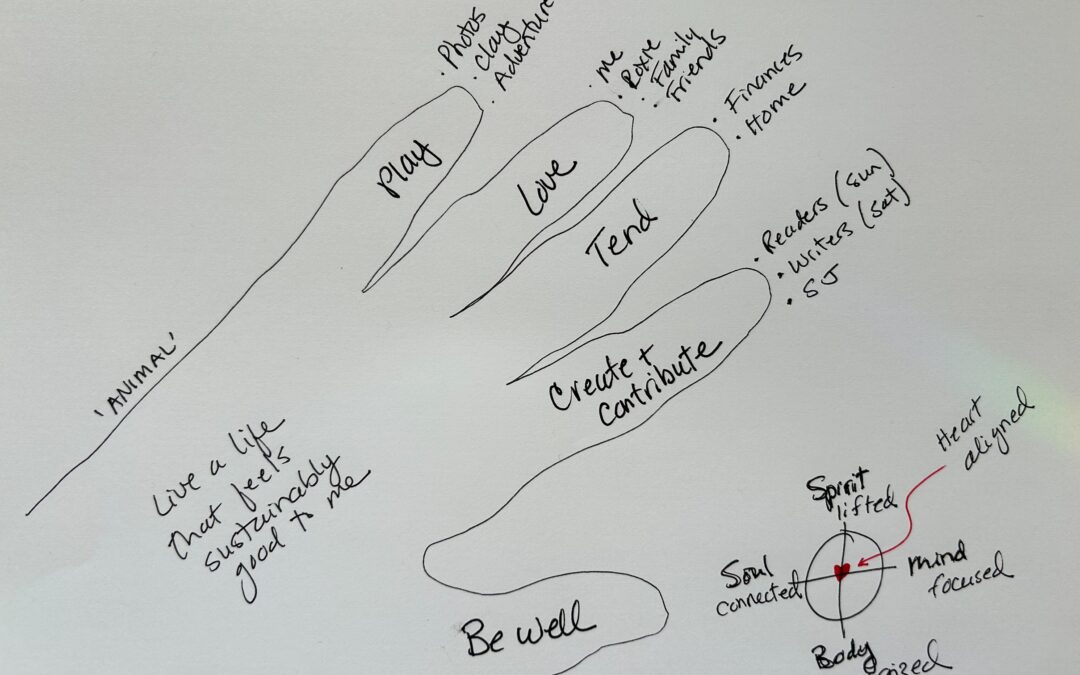 • Photos
• Clay
• Adventure
• me
• Roxie
• Family
• Friends
• Finances
• Home
• Readers (sun)
• Writers (sat)
• SJ
Play
Love
Tend
Create +
contribute
Be well
'ANIMAL'
Live a life
that feels
sustainably
good to me
Heart
aligned
Spirit
lifted
Soul
connected
mind
focused
Body